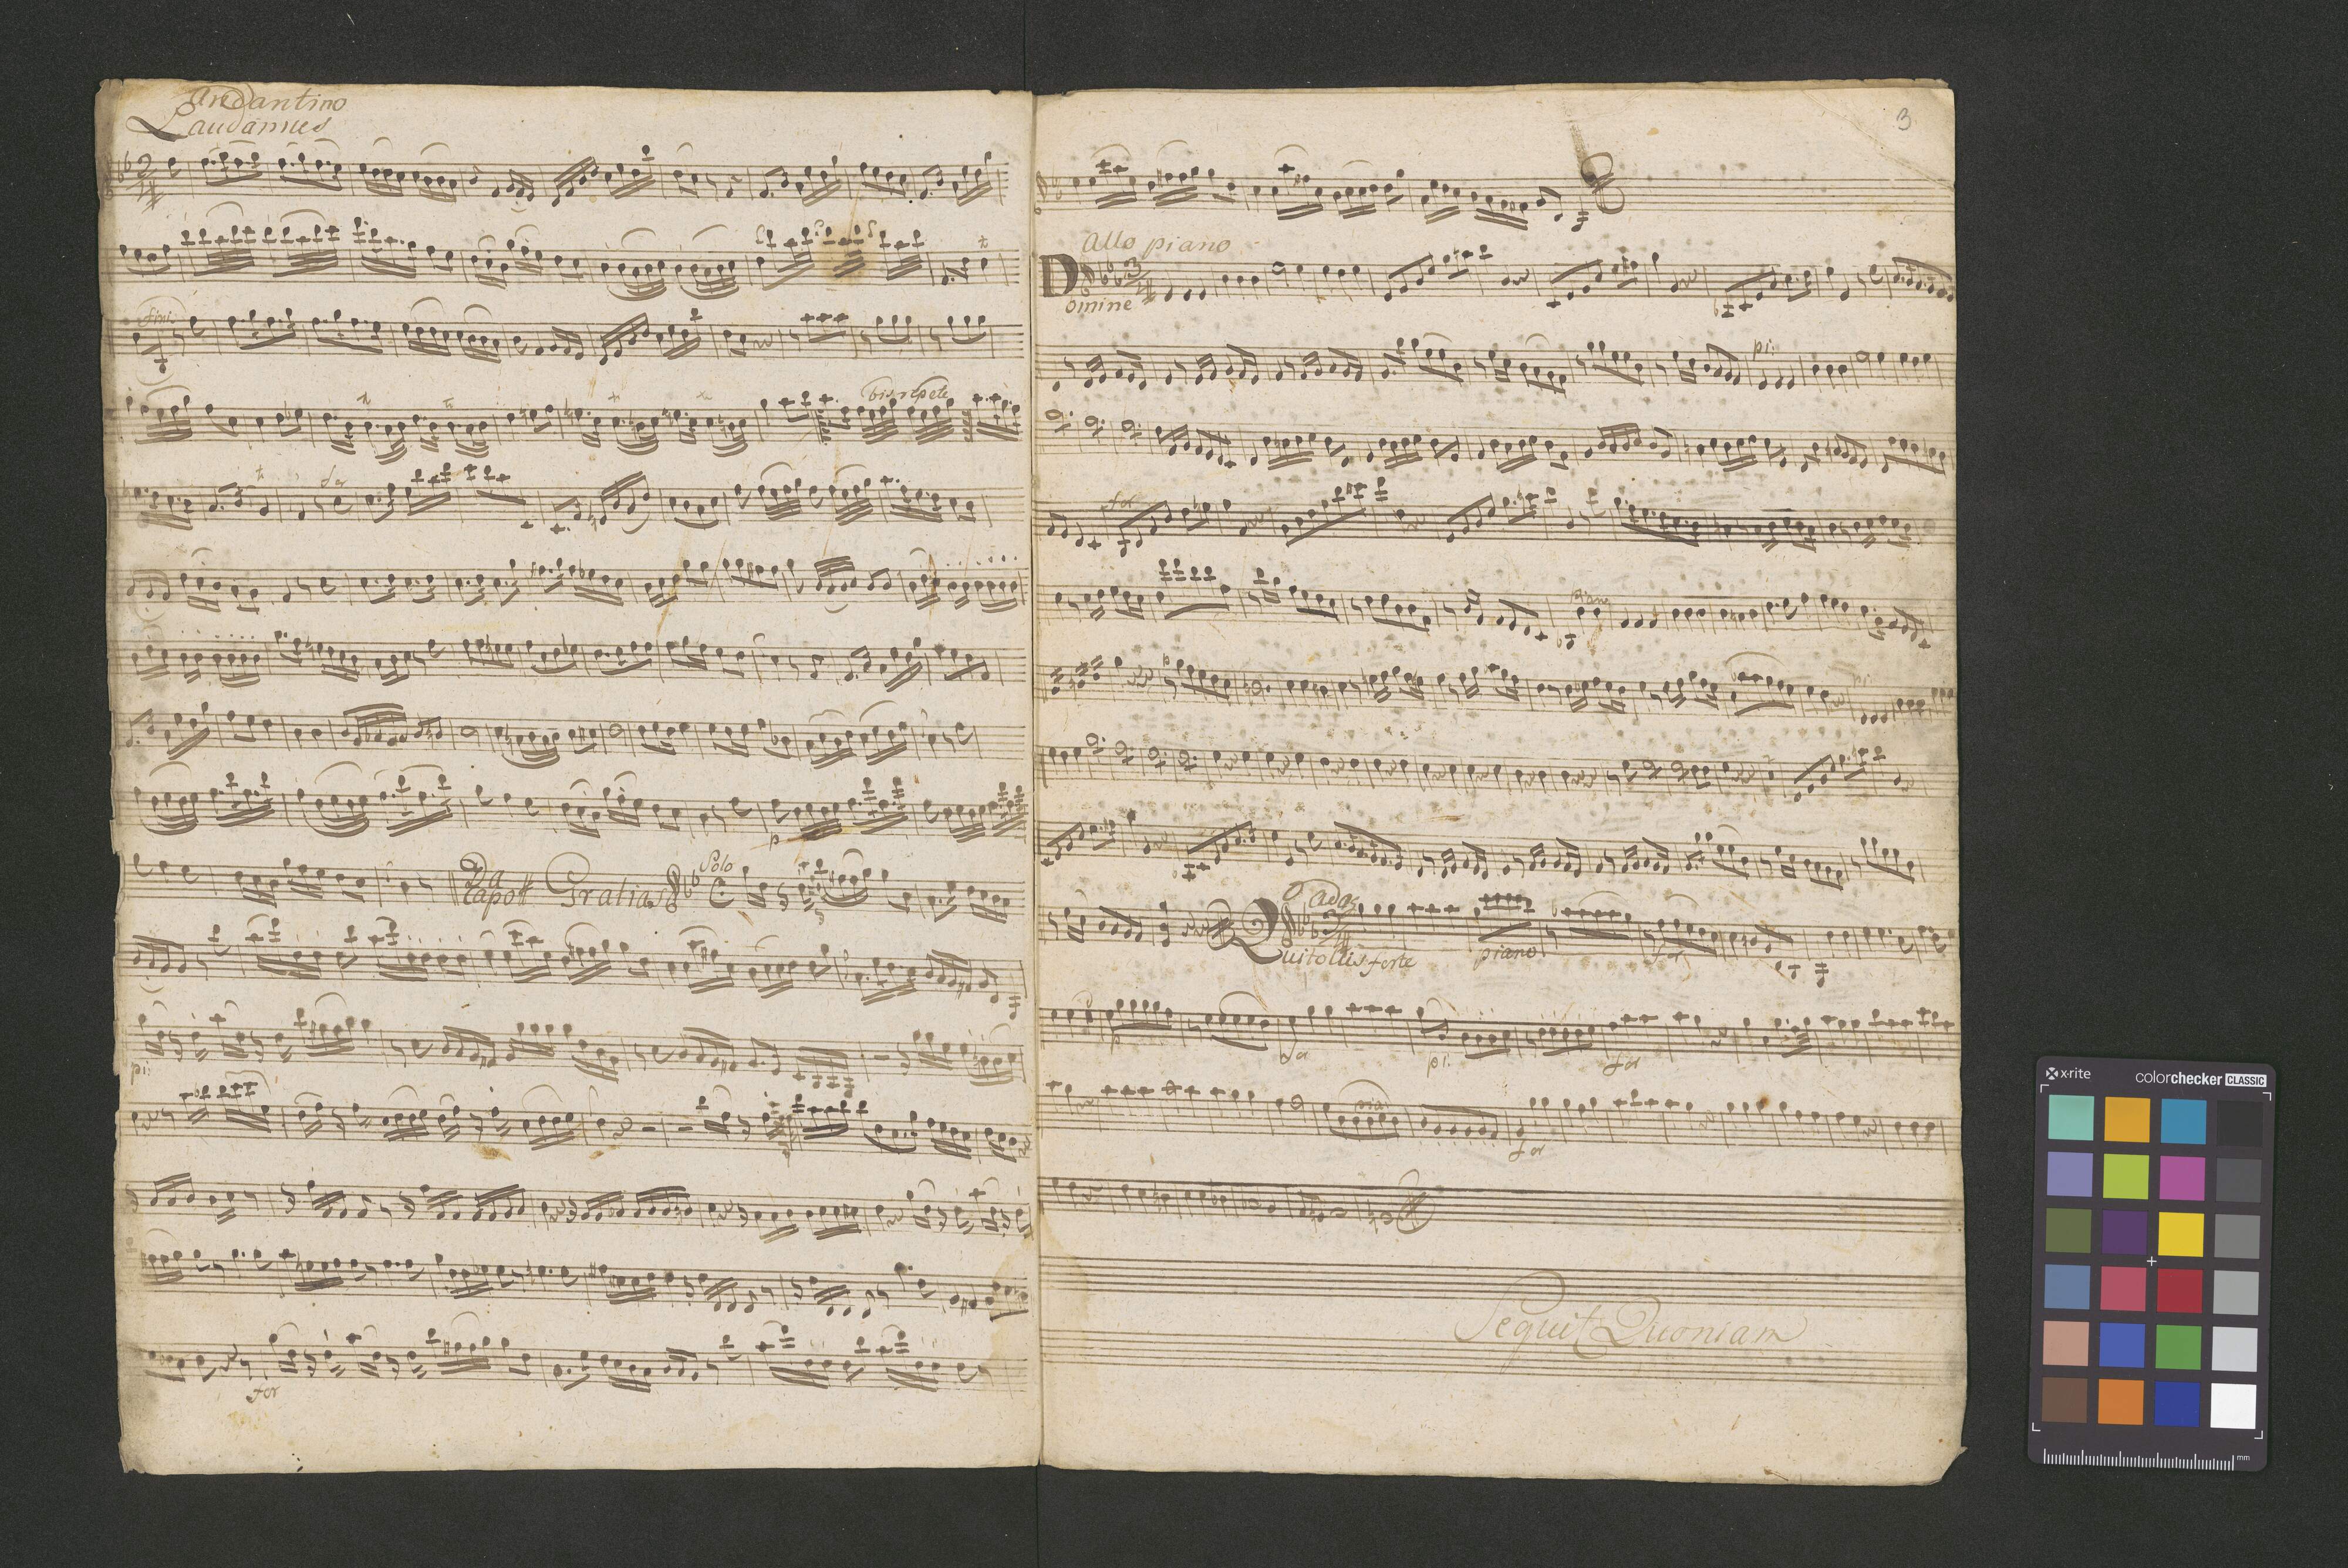 Andantino
Laudamus
2
4
fini
bis repete
for
p
Da
Capo
Gratias
Solo
pi:
for
3
Allo piano
3
4
Domine
pi:
for
pian
pi:
Adag
3
4
Qui tollis forte
piano
for
p
for
pi:
for
pia
for
Sequit Quoniam
x-rite
colorchecker CLASSIC
mm